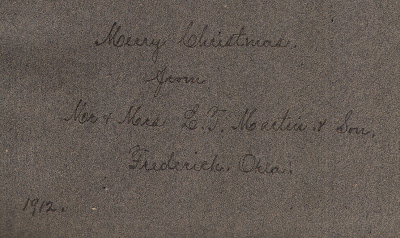 Merry Christmas.
from
Mr & Mrs E. T. Martin & Son.
Frederick. Okla.
1912.